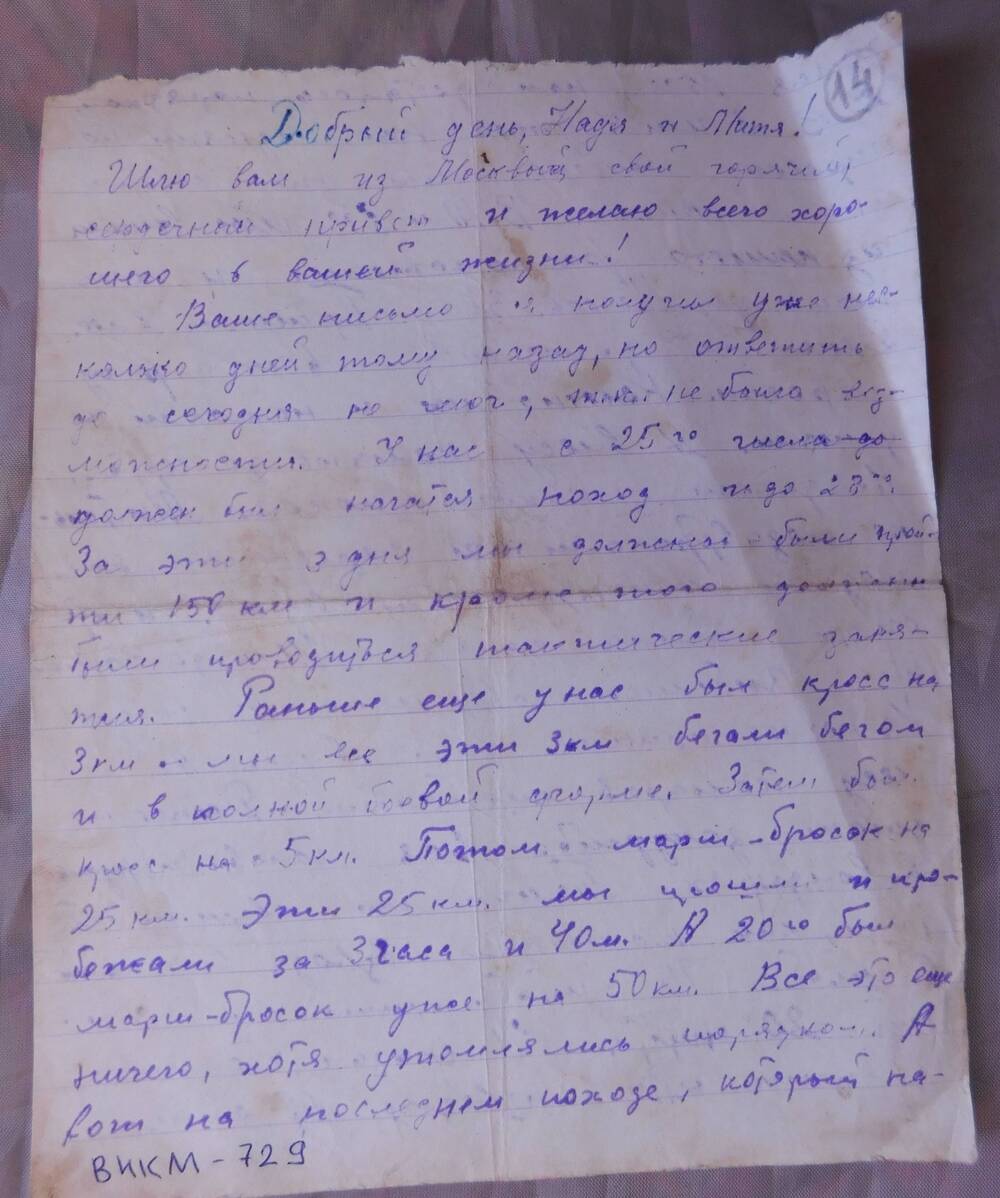 14
Добрый день, Надя и Митя!
Шлю вам из Москвы свой горячий,
сердечный привет и желаю всего хоро-
шего в вашей жизни!
Ваше письмо я получил уже нес-
колько дней тому назад, но ответить
до сегодня не мог, не было воз-
можности. У нас с 25го числа до
должен был начатся поход и до 28го.
За эти 3 дня мы должны были прой-
ти 150 км и кроме того должны
были проводиться тактические заня-
тия. Раньше еще у нас был кросс на
3 км и мы все эти 3 км бегали бегом
и в полной боевой форме. Затем был
кросс на 5 км. Потом марш-бросок на
25 км. Эти 25 км. мы прошли и про-
бежали за 3 часа и 40 м. А 20го был
марш-бросок уже на 50 км. Все это еще
ничего, хотя утомлялись порядком. А
вот на последнем походе, который на-
ВККМ-729